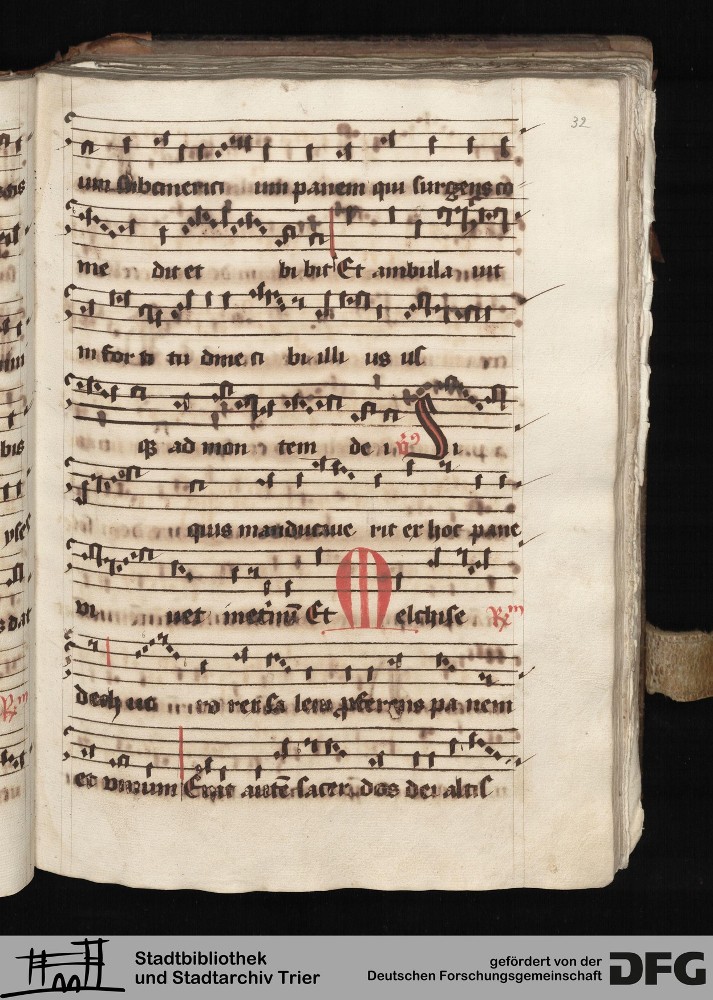 32
um subcinerici um panem qui surgens co
me dit et bi bit Et ambula uit
in for ti tu dine ci bi illi us us
qz ad mon tem de i v Si
quis manducaue rit ex hoc pane
vi uet inet'nū Et
Melchise Rm
dech ue ro rex sa lem pferens pa nem
et vinum Erat autē sacer dos dei altis
Stadtbibliothek
und Stadtarchiv Trier
gefördert von der
Deutschen Forschungsgemeinschaft
DFG